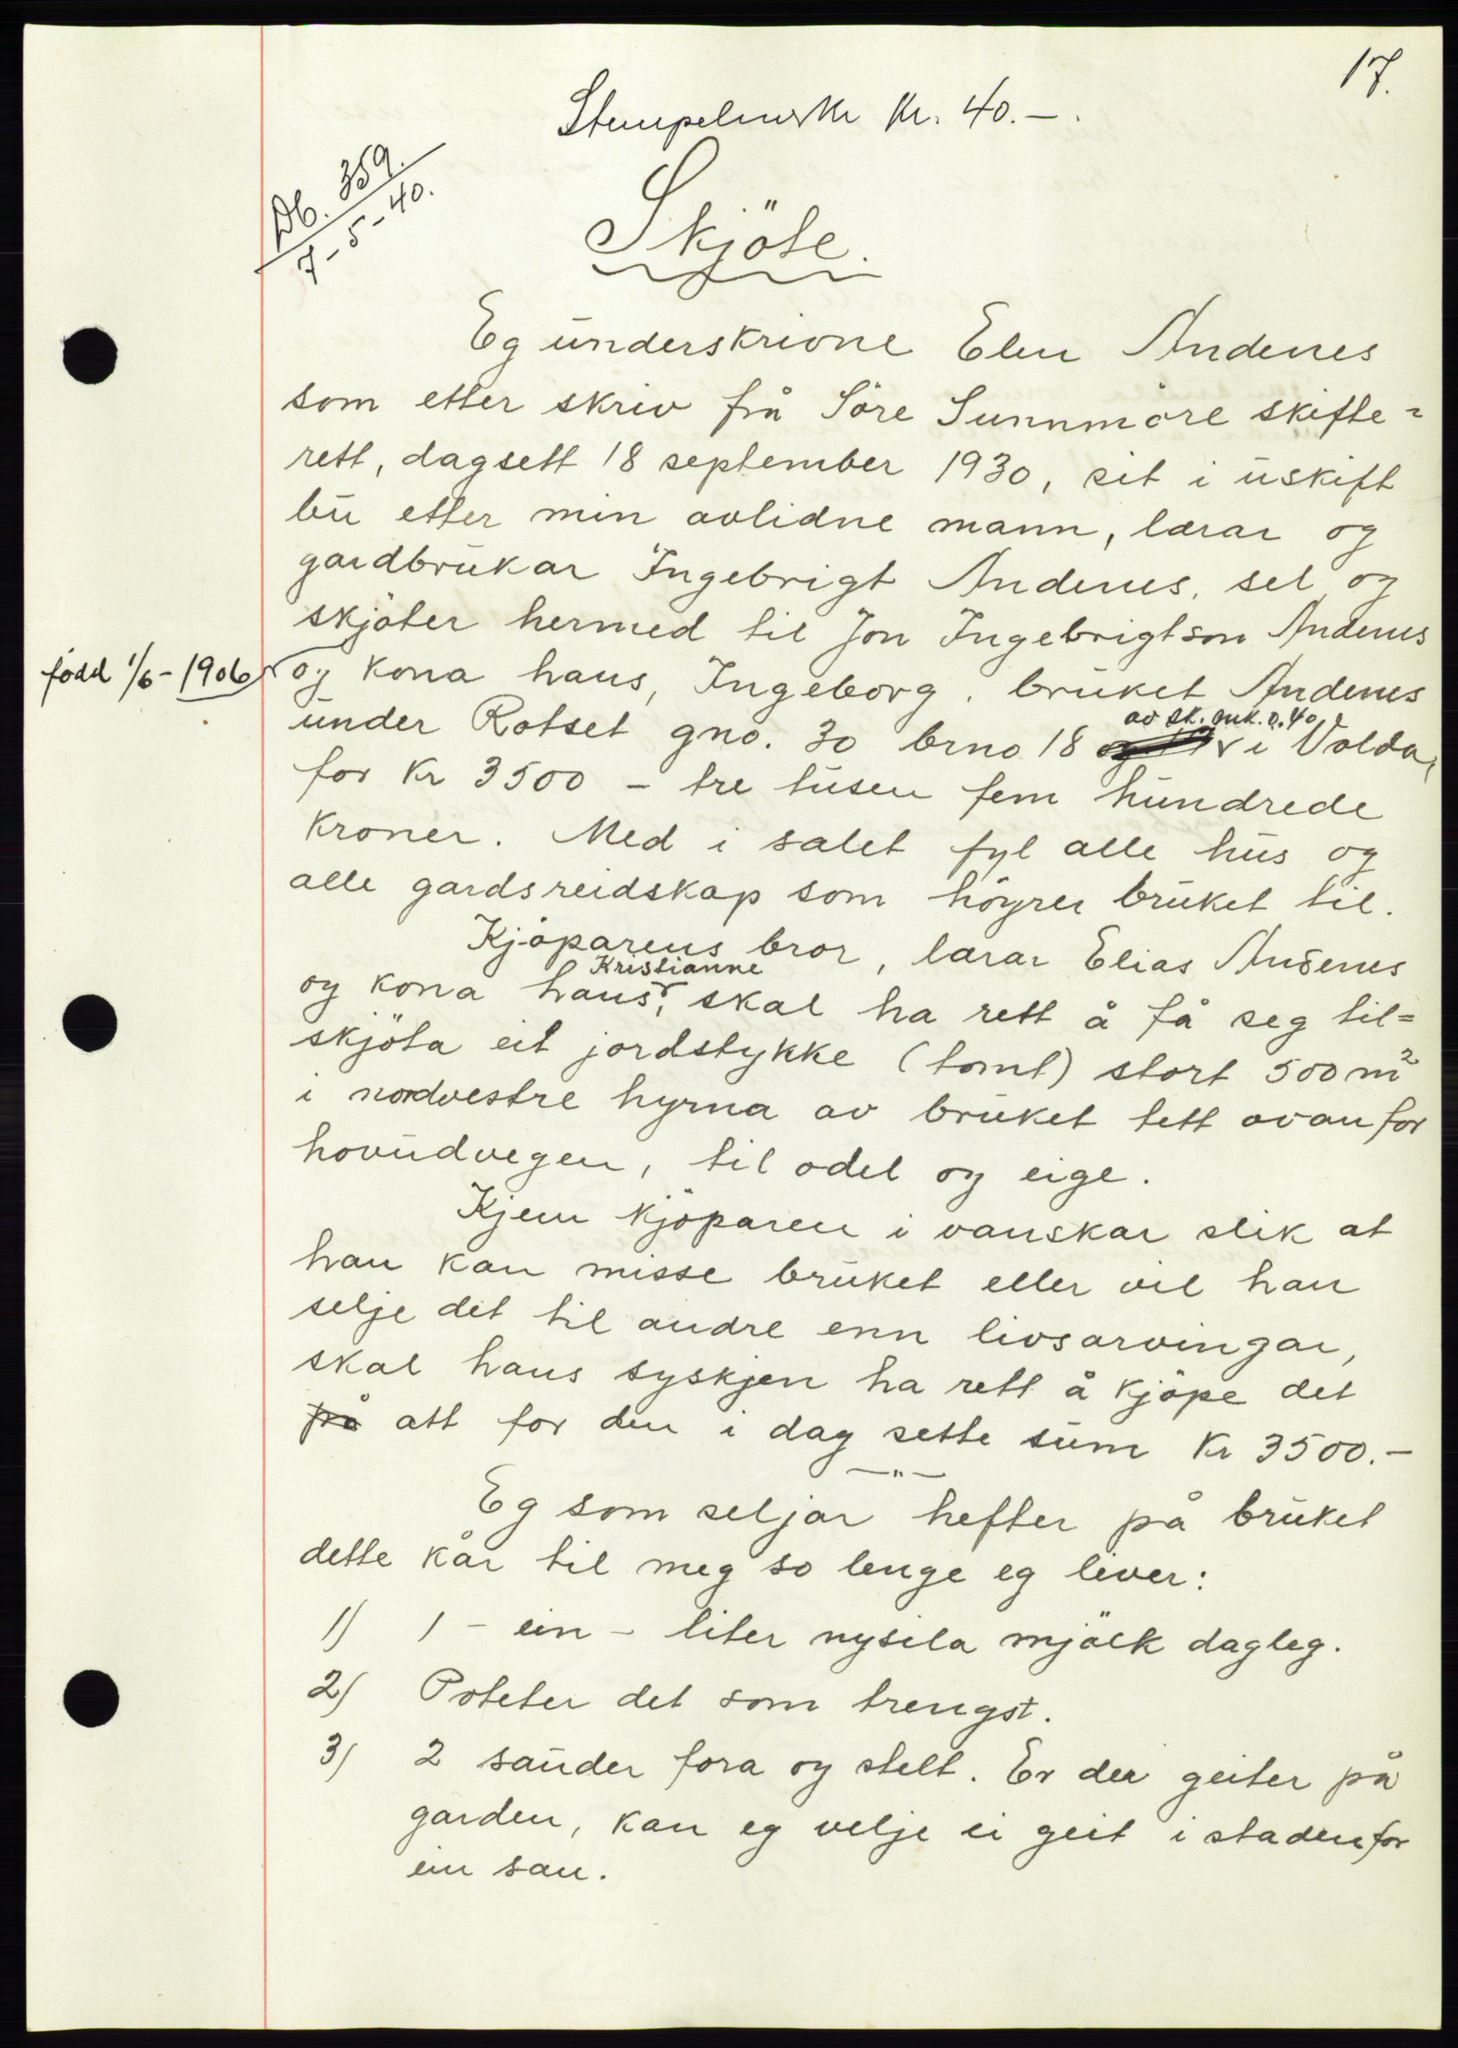 17.
Stempelmerke kr. 40.-
Db. 359.
7-5-40.
Skjöte.
Eg underskrivne Elen Andenes
som etter skriv frå Söre Sunnmöre skifte=
rett, dagsett 18 september 1930, sit i uskift
bu etter min avlidne mann, lærar og
gardbrukar Ingebrigt Andenes, sel og
skjöter hermed til Jon Ingebrigtson Andenes
född 1/6-1906
og kona hans, Ingeborg, bruket Andenes
under Rotset gno. 30 brno 18 i Volda,
av sk. mk. 0.40
for kr 3500 - tre tusen fem hundrede
kroner. Med i salet fyl alle hus og
alle gardsreidskap som höyrer bruket til.
Kjöparens bror, lærar Elias Andenes
og kona hans, Kristianne skal ha rett å få seg til=
skjöta eit jordstykke (tomt) stort 500 m²
i nordvestre hyrna av bruket tett ovanfor
hovudvegen, til odel og eige.
Kjem kjöparen i vanskar slik at
han kan misse bruket eller vil han
selje det til andre enn livsarvingar,
skal hans syskjen ha rett å kjöpe det
på att for den i dag sette sum kr 3500.-
-"-
Eg som seljar hefter på bruket
dette kår til meg so lenge eg lever:
1) 1 - ein - liter nysila mjölk dagleg.
2) Poteter det som trengst.
3) 2 sauder fora og stelt. Er der geiter på
garden, kan eg velje ei geit i staden for
ein sau.